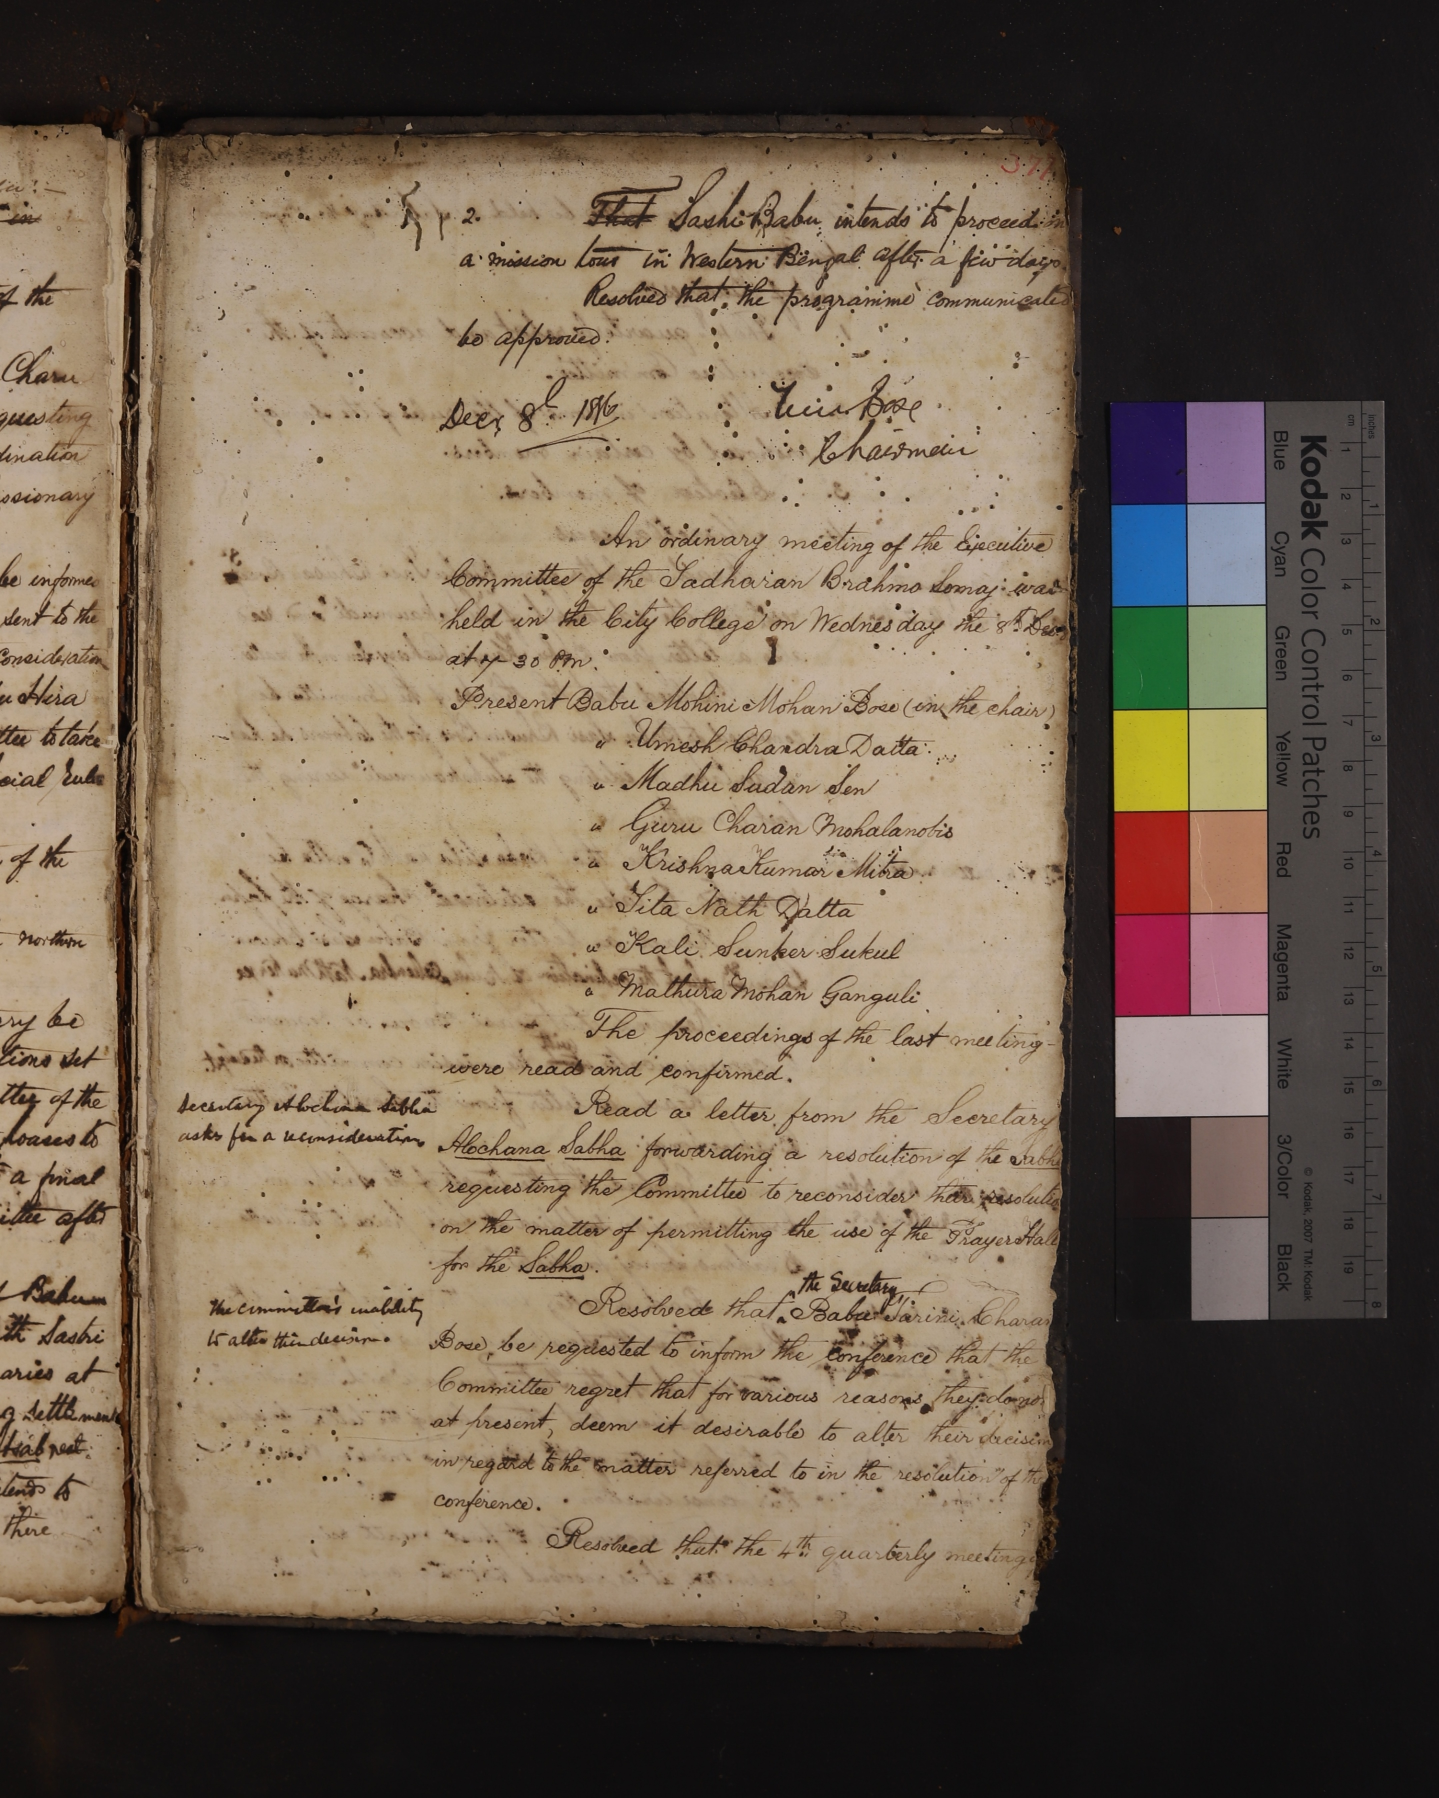 of the
Charu
questing
dination
ssionary
be informed
sent to the
consideration
Hira
ttee to take
cial Sub-
of the
northern
be
tions set
tter of the
a final
ittee after
Babu
th Sastri
aries at
g settlement
tends to
there
2. That Sashi Babu intends to proceed in
a mission tour in Western Bengal after a few days.
Resolved that the programme communicated
be approved.
Dec. 8th
Bose
Chairman
An ordinary meeting of the Executive
Committee of the Sadharan Brahmo Somaj was
held in the City College on Wednesday the 8th Dec.
at 7-30 P.M.
Present Babu Mohini Mohan Bose (in the chair)
" Umesh Chandra Datta
" Madhu Sudan Sen
" Guru Charan Mohalanobis
" Krishna Kumar Mitra
" Sita Nath Datta
" Kali Sunker Sukul
" Mathura Mohan Ganguli
The proceedings of the last meeting
were read and confirmed.
Secretary Alochana Sabha
asks for a reconsideration
Read a letter from the Secretary
Alochana Sabha forwarding a resolution of the Sabha
requesting the Committee to reconsider their resolution
on the matter of permitting the use of the Prayer Hall
for the Sabha.
the Secretary
The committee's inability
to alter their decision.
Resolved that Babu Tarini Charan
Bose, be requested to inform the conference that the
Committee regret that for various reasons they do not
at present, deem it desirable to alter their decision
in regard to the matter referred to in the resolution of the
conference.
Resolved that the 4th quarterly meeting
Kodak Color Control Patches
Blue Cyan Green Yellow Red Magenta White 3/Color Black
© Kodak, 2007 TM: Kodak
inches 1 2 3 4 5 6 7 8
cm 1 2 3 4 5 6 7 8 9 10 11 12 13 14 15 16 17 18 19